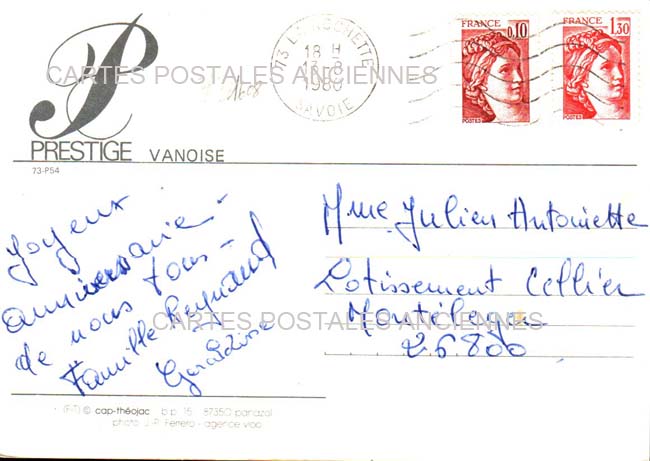 FRANCE
0,10
POSTES
FRANCE
1,30
POSTES
73 LA ROCHETTE
18 H
13-8
1980
SAVOIE
CARTES POSTALES ANCIENNES
P
PRESTIGE VANOISE
73-P54
Joyeux
anniversaire
de nous tous -
Famille
Géraldine
Mme Julien Antoinette
Lotissement Cellier
Montéléger
26800
CARTES POSTALES ANCIENNES
© cap-théojac b.p. 15 87350 panazol
photo J.-P. Ferrero - agence vloo